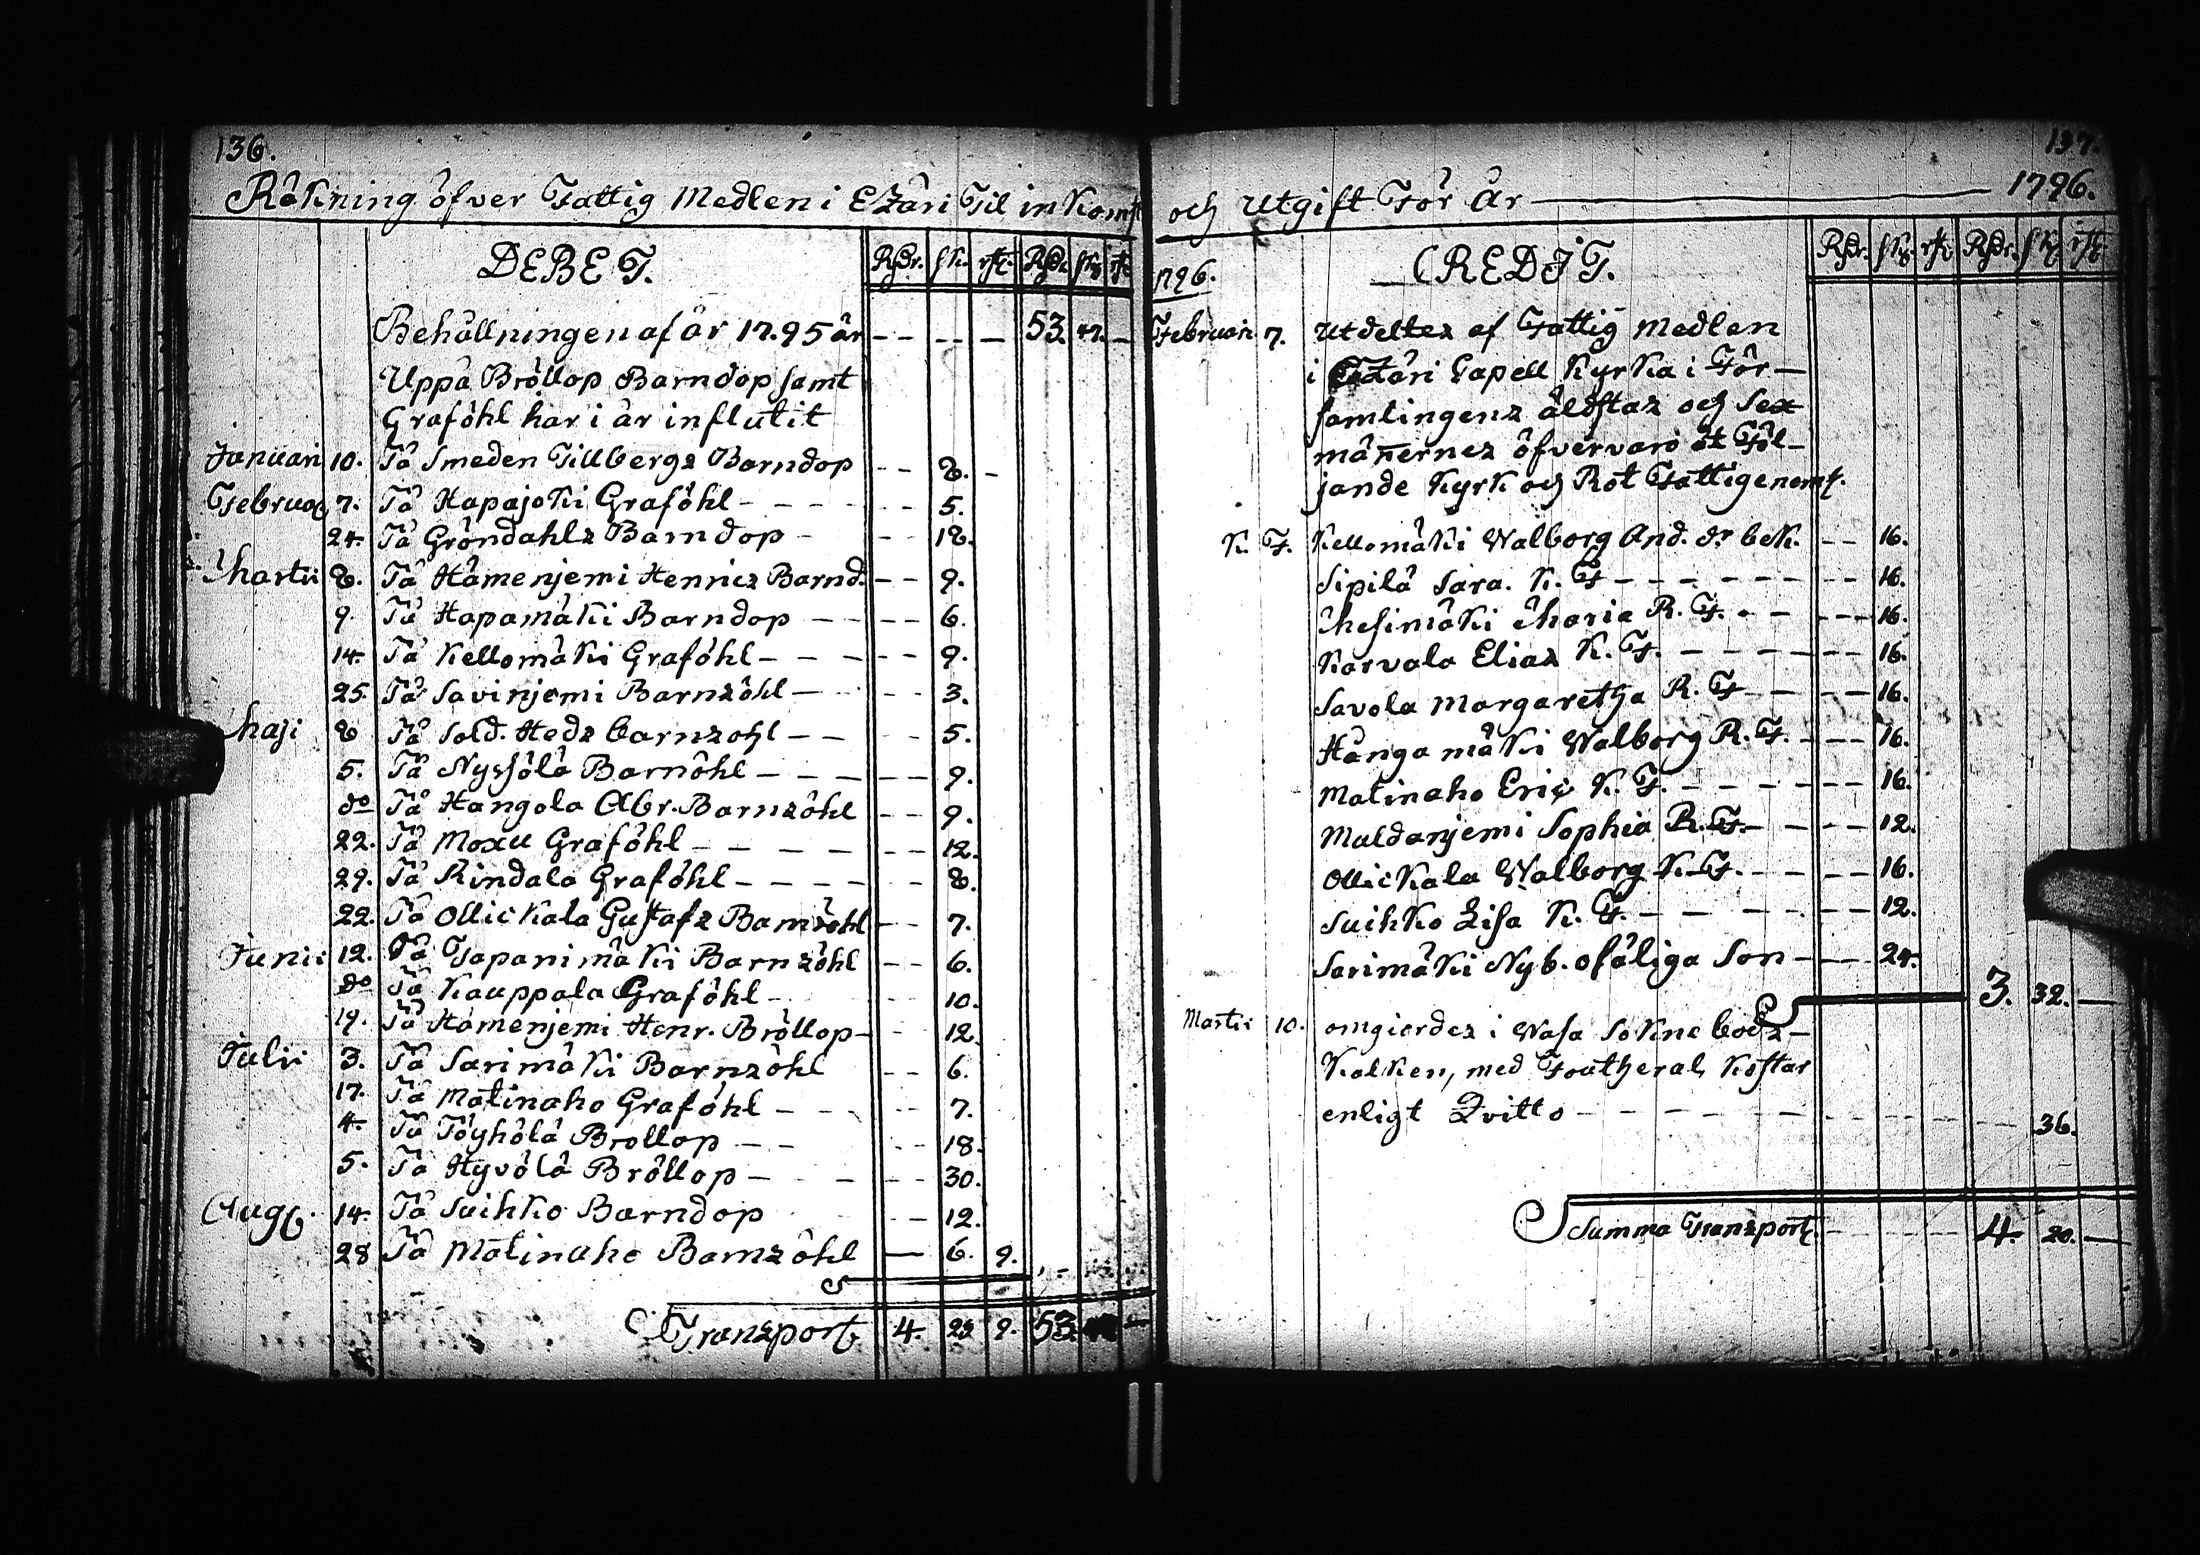 136.
Räkning öfver Fattig Medlen i Ezäri Til inkomst
DEBET. Rsdr. sk. rst. Rsdr. skg rst
Behållningen af år 1795 år - - - - - 53. 47. -
Uppå Bröllop Barndop samt
Graföhl har i år influtit
Januari 10. På Smeden Tillbergs Barndop - - 8. -
Februar 7. På Hapajoki Graföhl - - - - - - 5.
24. På Gröndahls Barndop - - - 18.
Martii 8. På Hämenjemi Henrics Barnd. - - 9.
9. På Hapamäki Barndop - - - - 6.
14. På Kellomäki Graföhl - - - - - 9.
25. På Savinjemi Barnsöhl - - - - 3.
Maji 8 På Sold. Heds barnsöhl - - - - 5.
5. På Nyssölä Barnöhl - - - - - - 9.
do På Hangola Abr. Barnsöhl - - 9.
22. På Moxu Graföhl - - - - - - - 12.
29. På Rindala Graföhl - - - - - - - 8.
22. På Ollickala Gustafs Barnsöhl - - 7.
Junii 12. På Tapanimäki Barnsöhl - - 6.
do På Kauppala Graföhl - - - 10.
19. På Hämenjemi Henr. Bröllop - - 12.
Julii 3. På Sarimäki Barnsöhl - - 6.
17. På Matinaho Graföhl - - - - 7.
4. På Töyhölä Bröllop - - - - 18.
5. På Hyvölä Bröllop - - - - - 30.
Aug. 14. På Suihko Barndop - - 12.
28 På Matinaho Barnsöhl - 6. 9.
Transport 4. 23 9. 53.
137.
och Utgift För År 1796.
1796. CREDIT. Rsdr. skg rst Rsdr. skg rst
Februari 7. Utdeltes af Fattig Medlen
i Ezäri Capell Kyrka i För-
samlingens äldstas och Sex
männernes öfvervaro åt Föl-
jande Kyrk och Rot Fattige noml.
K. F. Kellomäki Walborg And. dr bek. - - 16.
Sipilä Sara. K. F - - - - - - - - 16.
Mesimäki Maria R. F. - - - - - 16.
Karvala Elias K. F. - - - - - - - 16.
Savola Margaretha R. F - - - - 16.
Hanga mäki Walborg R. F. - - - 16.
Matinaho Eric K. F. - - - - - - - 16.
Muldanjemi Sophia R. F. - - - - - 12.
Ollickala Walborg K. F. - - - - - 16.
Suihko Lisa K. F. - - - - - - - 12.
Sarimäki Nyb. ofäliga Son - - - 24.
3. 32. -
Martii 10. omgiordes i Wasa Sokne bods-
Kalken, med Foutheral, Kostar
enligt Qvitto - - - - - - - - - - 36.
Summa Transport. - - - - - 4. 20. -